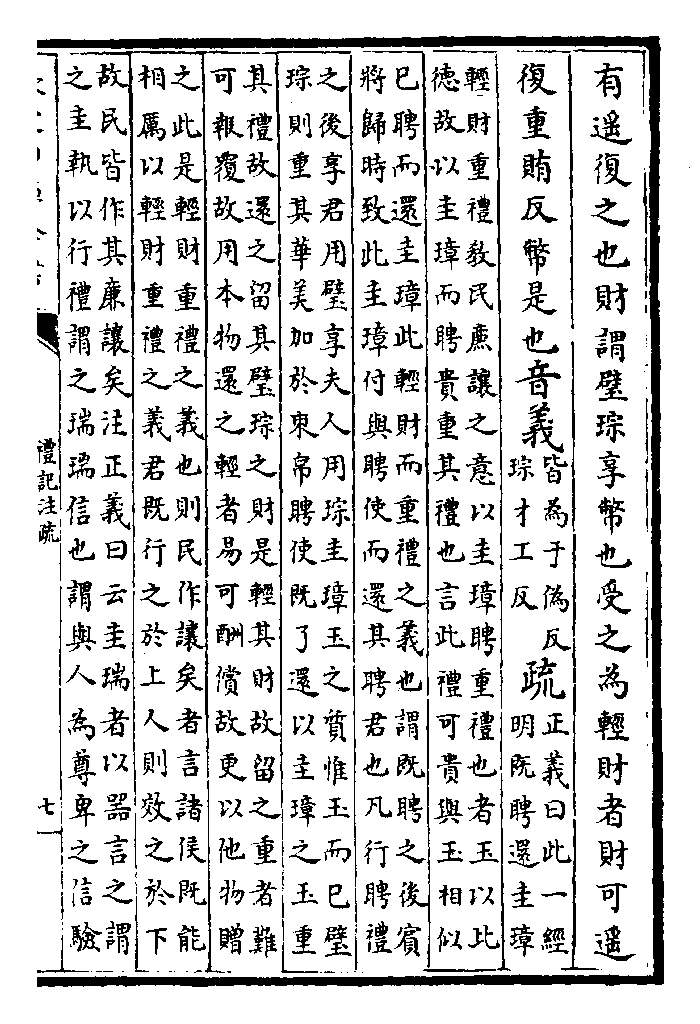 有遥復之也財謂璧琮享幣也受之為輕財者財可遥
復重賄反幣是也音義皆為于偽反琮才工反疏正義曰此一經明既聘還圭璋
輕財重禮教民廉讓之意以圭璋聘重禮也者玉以比
德故以圭璋而聘貴重其禮也言此禮可貴與玉相似
已聘而還圭璋此輕財而重禮之義也謂既聘之後賓
將歸時致此圭璋付與聘使而還其聘君也凡行聘禮
之後享君用璧享夫人用琮圭璋玉之質惟玉而已璧
琮則重其華美加於束帛聘使既了還以圭璋之玉重
其禮故還之留其璧琮之財是輕其財故留之重者難
可報覆故用本物還之輕者易可酬償故更以他物贈
之此是輕財重禮之義也則民作讓矣者言諸侯既能
相厲以輕財重禮之義君既行之於上人則效之於下
故民皆作其廉讓矣注正義曰云圭瑞者以器言之謂
之圭執以行禮謂之瑞瑞信也謂與人為尊卑之信驗
禮記注疏
七